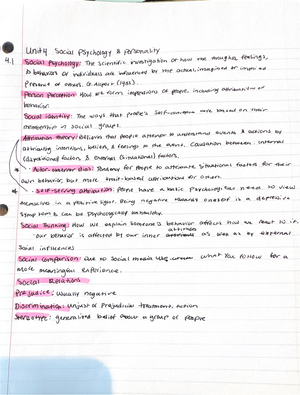 Unit 4 Social Psychology & personality
4.1 Social Psychology: The scientific investigation of how the thoughts, feelings,
& behaviors of individuals are influenced by the actual, imagined or implied
presence of others. G. Allport (1985).
Person Perception: How we form impressions of people, including attributions of
behavior.
Social identity: The ways that people's self-concepts are based on their
membership in social groups.
Attribution theory: Believes that people attempt to understand events & actions by
attributing intentions, beliefs, & feelings to the events. Causation between internal
(dispositional) factors & external (situational) factors.
* Actor observer bias: Tendency for people to attribute situational factors for their
own behavior, but more trait-based attributions for others.
* Self-serving attribution: People have a basic psychological need to view
themselves in a positive light. Being negative towards oneself is a depressive
symptom & can be psychologically unhealthy.
Social Thinking: How we explain someone's behavior affects how we react to it
our behavior is affected by our inner attitudes as well as by external
social influences
Social Comparison: Due to social media use what you follow for a
more meaningful experience.
Social Relations
Prejudice: Usually negative
Discrimination: Unjust or Prejudicial treatment, action
Stereotype: generalized belief about a group of people